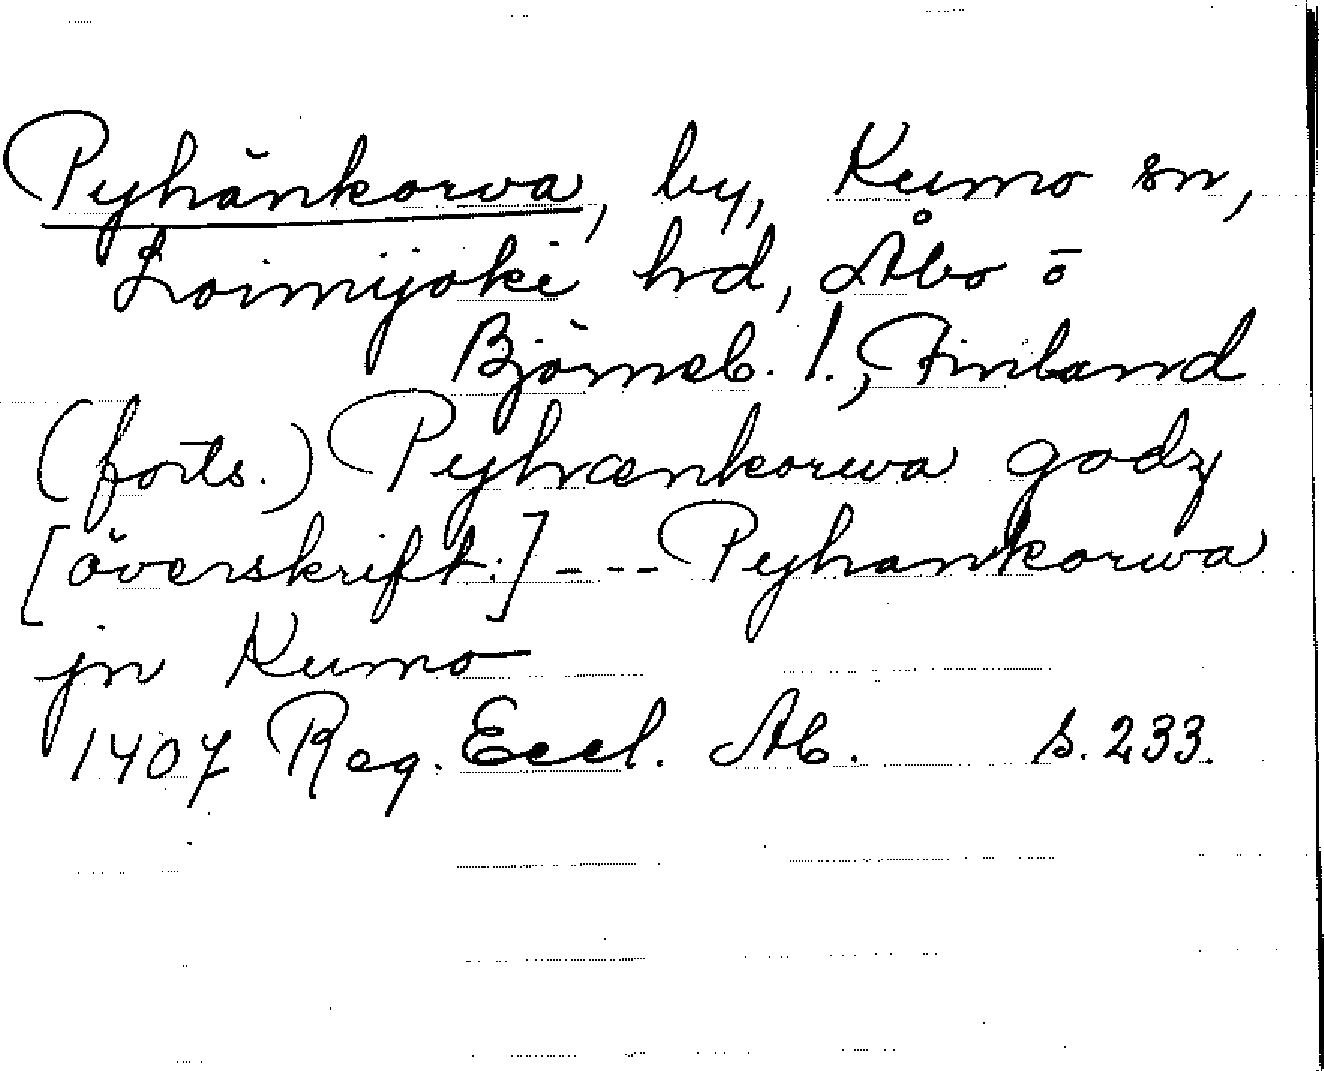 Pyhänkorva, by, Kumo sn,
Loimijoki hd, Åbo o
Björneb. l., Finland
(forts.) Pyhænkorwa godz
[överskrift:] --- Pyhankorwa
jn Kumo
1407 Reg. Eccl. Ab. s. 233.